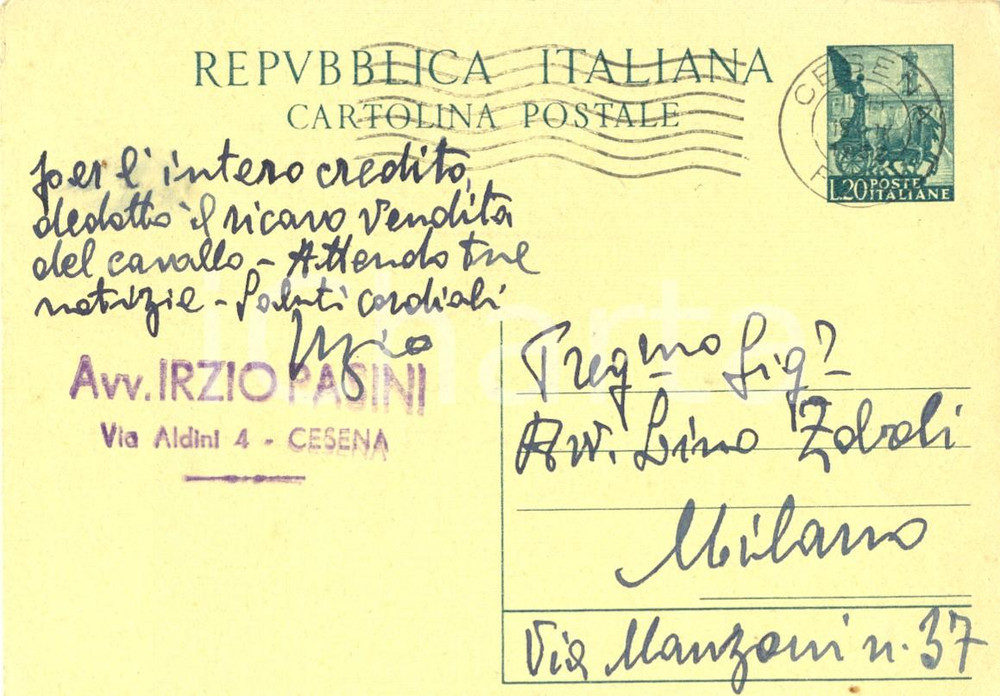 REPVBBLICA ITALIANA
CARTOLINA POSTALE
CESENA
L.20 POSTE ITALIANE
per l'intero credito,
dedotto il ricavo vendita
del cavallo - Attendo tue
notizie - Saluti cordiali
Irzio
Avv. IRZIO PASINI
Via Aldini 4 - CESENA
Preg.mo Sig.r
Avv. Lino Zoboli
Milano
Via Manzoni n. 37